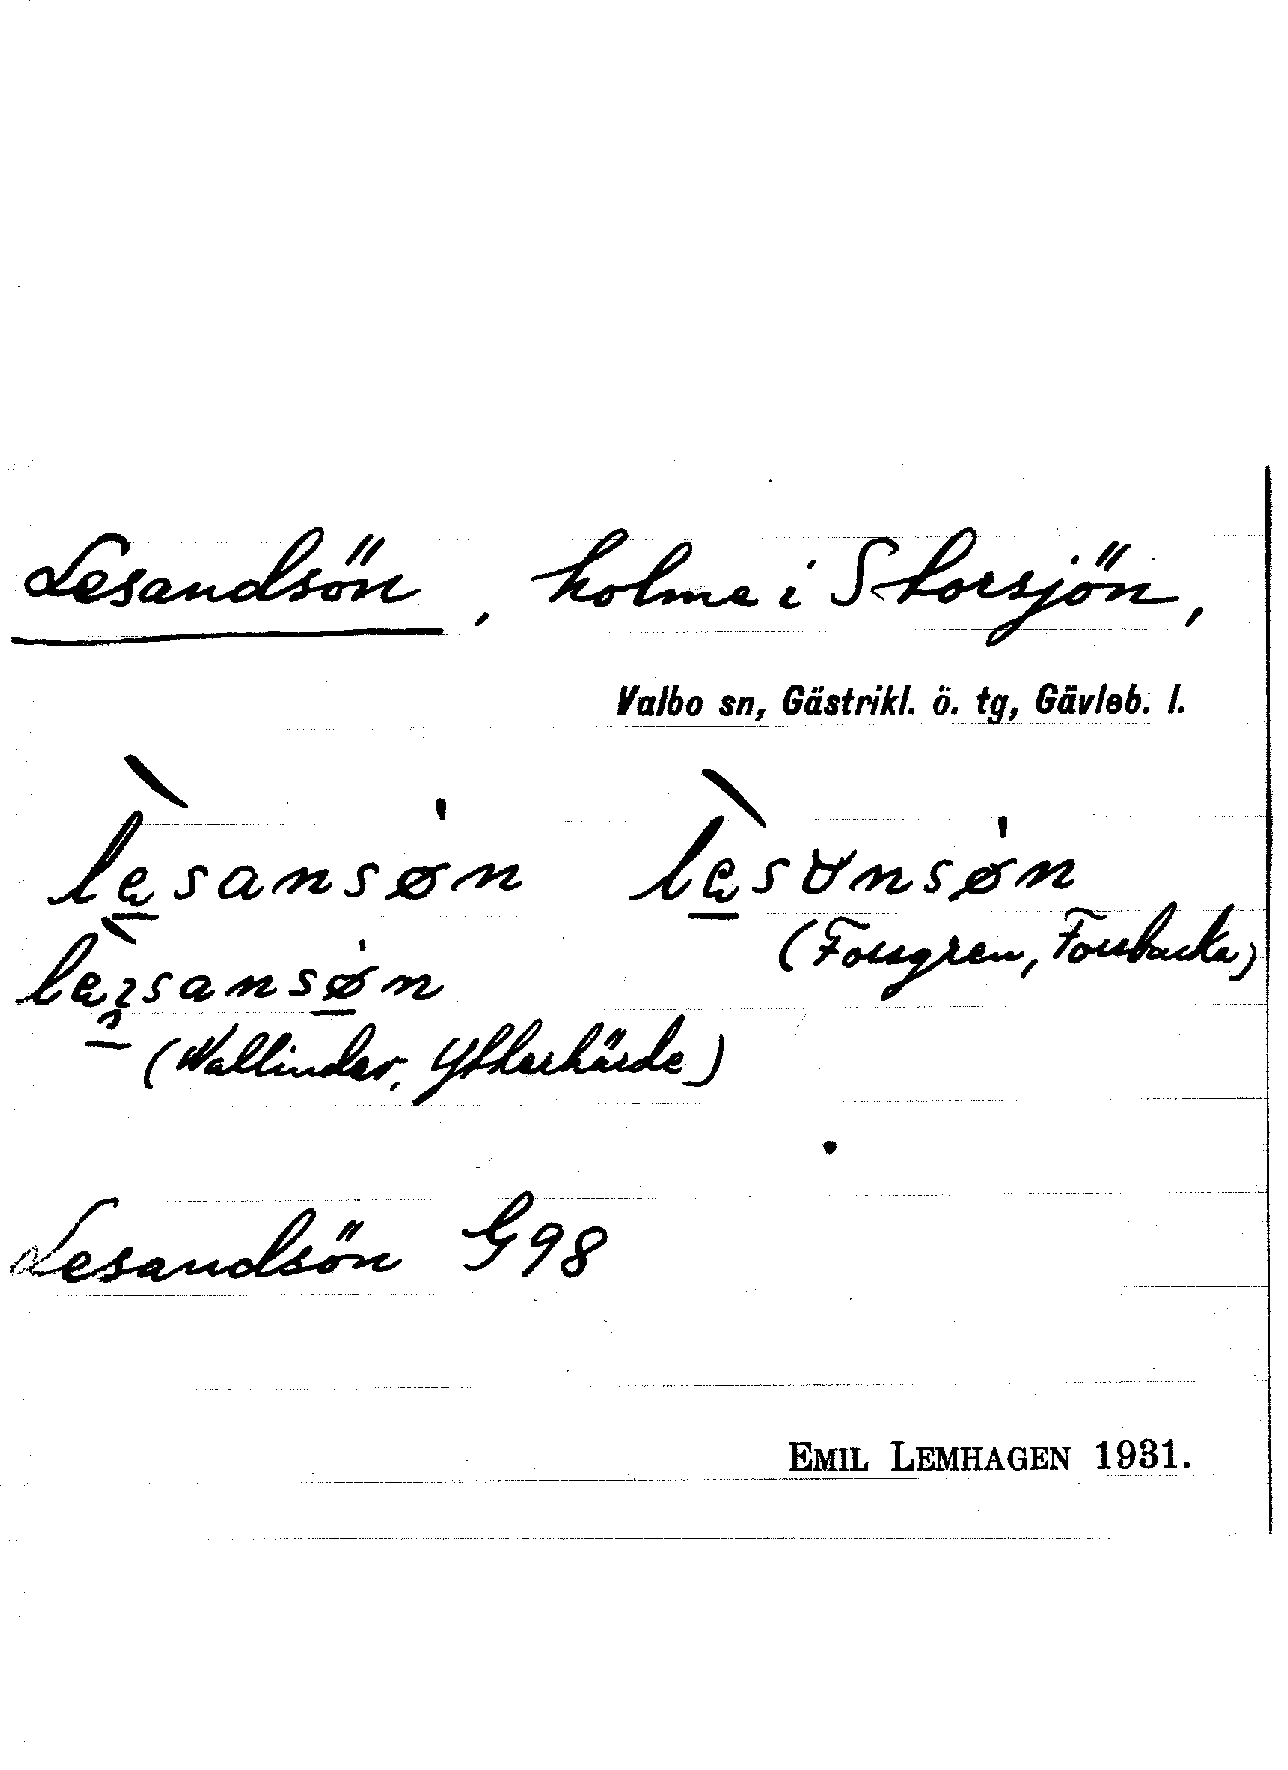 Lesandsön, holme i Storsjön,
Valbo sn, Gästrikl. ö. tg, Gävleb. l.
lèsansø̍n lèsɐnsø̍n
(Forsgren, Forsbacka)
lèsansø̍n
(Wallinder, Ytterhärde)
Lesandsön G98
EMIL LEMHAGEN 1931.